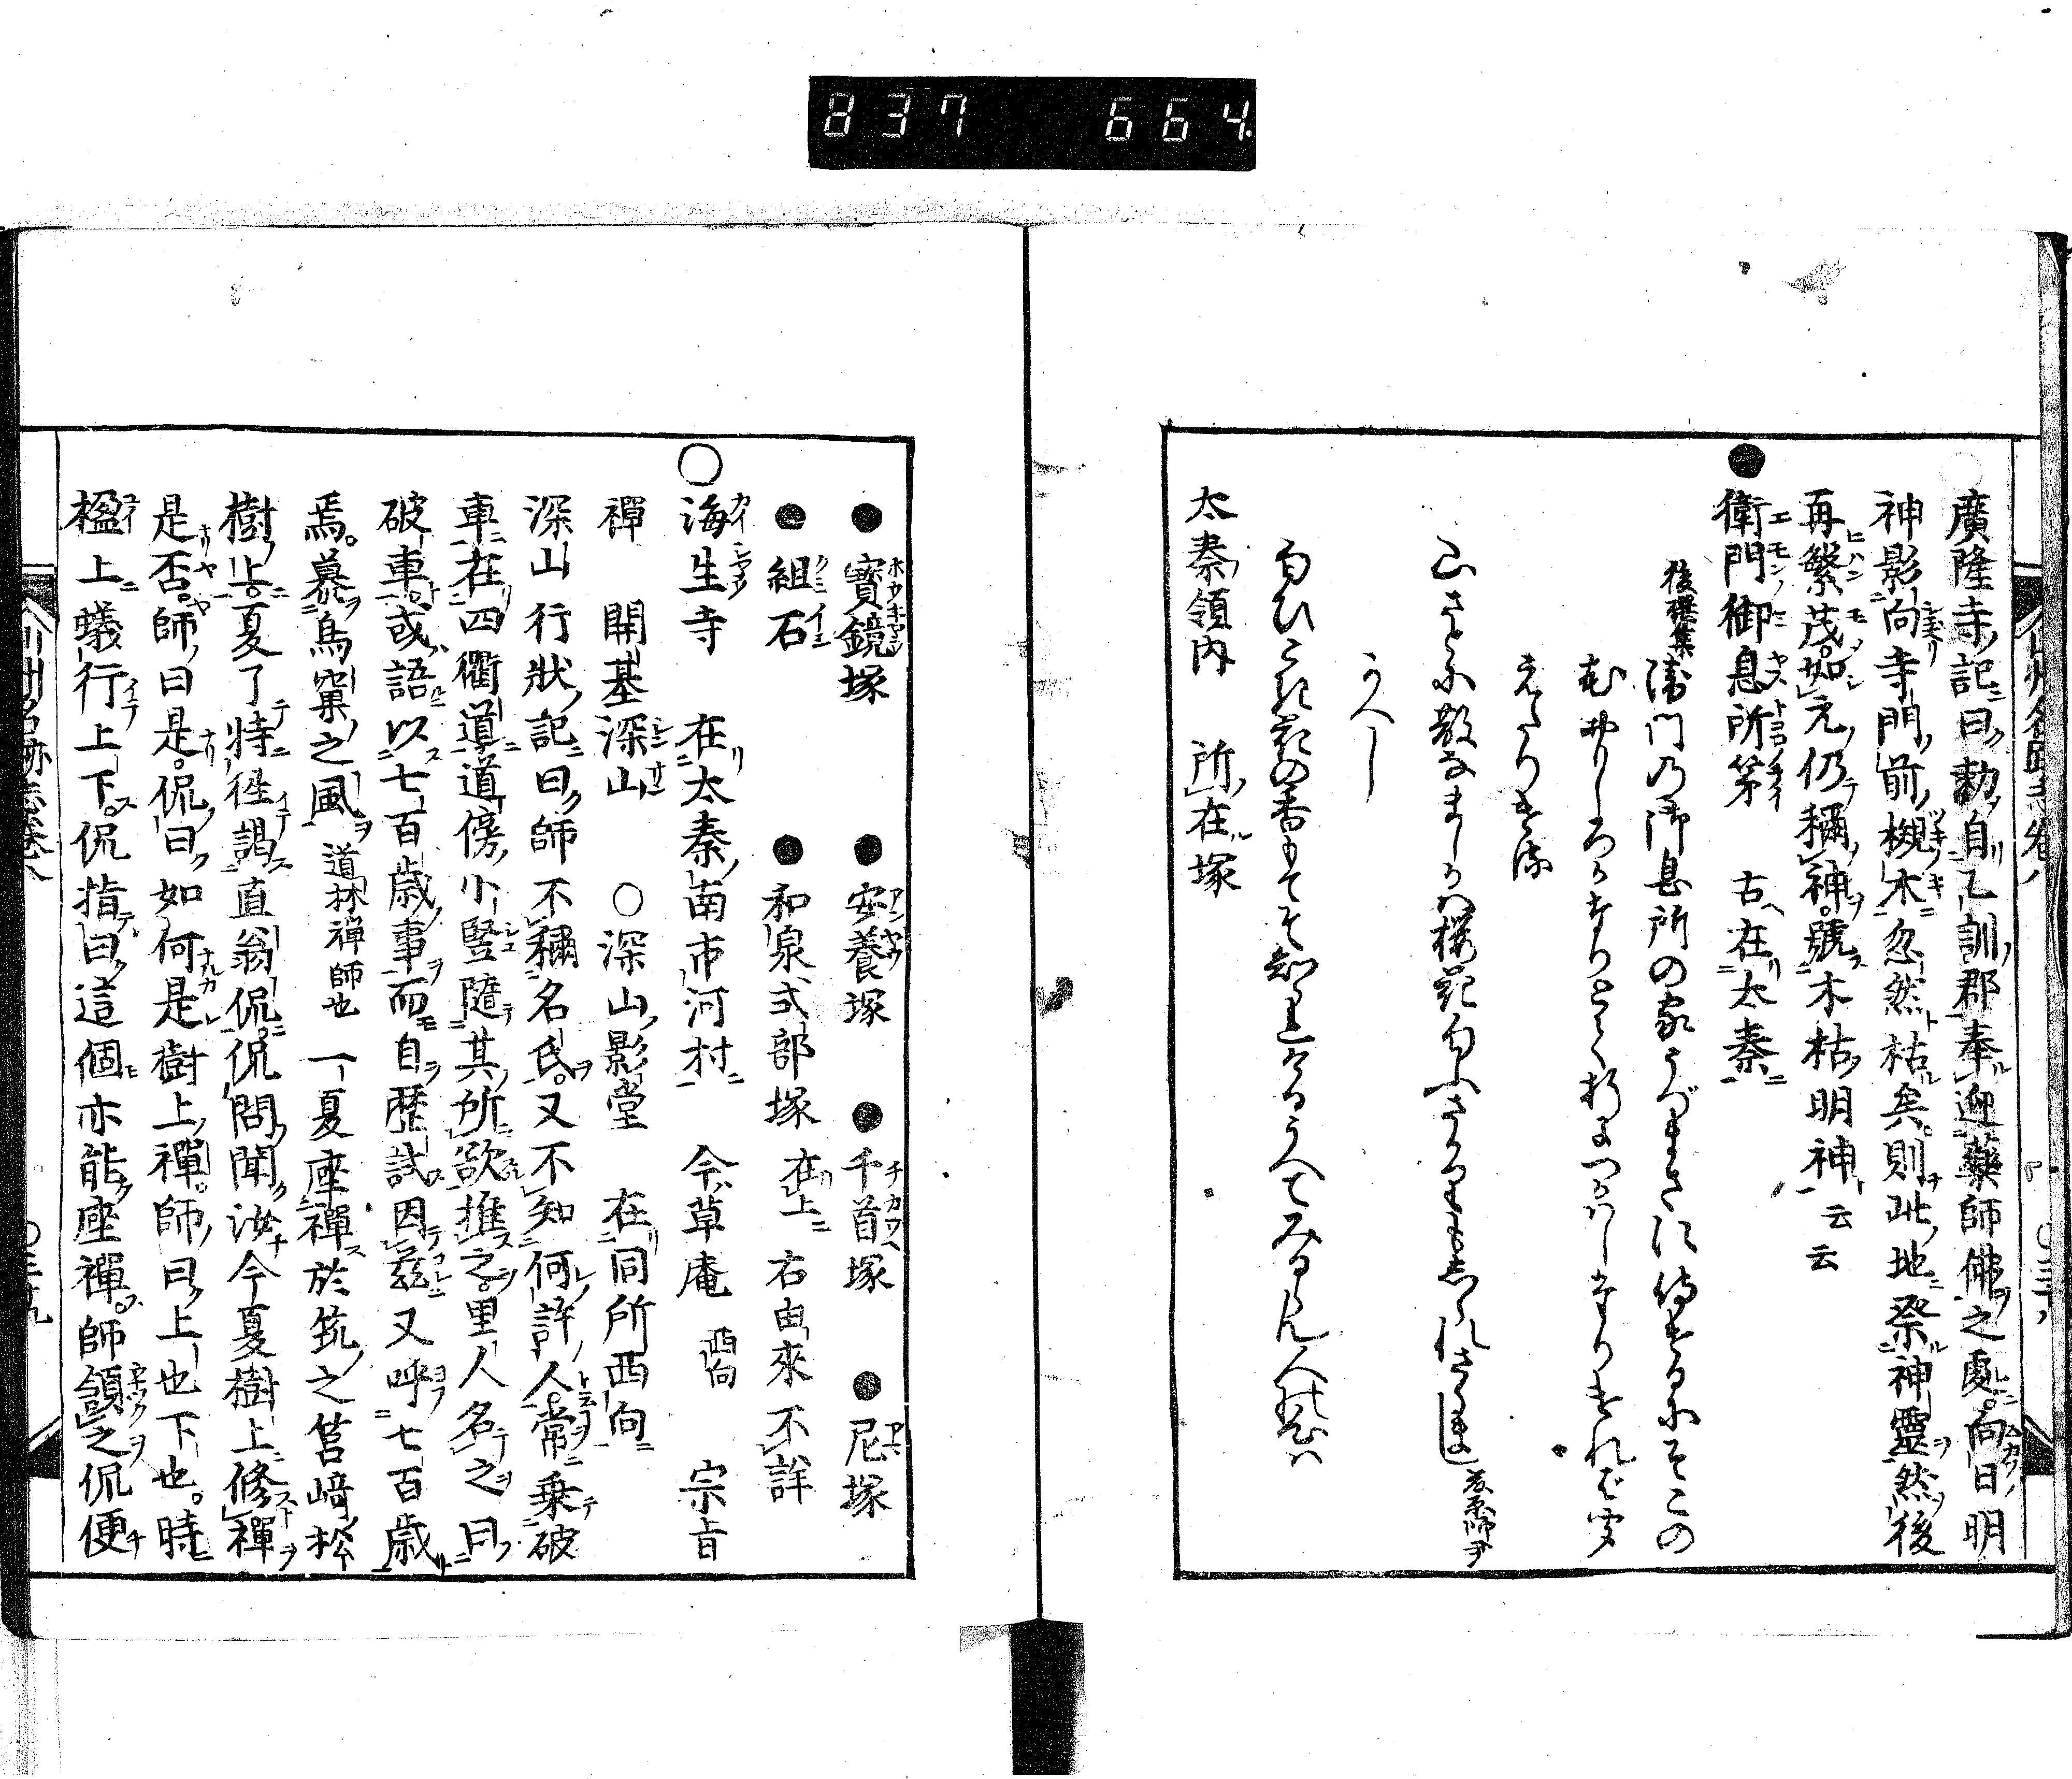 837 664
廣隆寺記曰勅自乙訓郡奉迎藥師佛之處向日明
神影向寺門前槻木忽然枯矣則此地祭神靈然後
再繁茂如元仍稱神號木枯明神云云
●衛門御息所第 古在太秦
後撰集 衛門の御息所の家うづまさに侍けるにそこの
花おもしろかなりとて折につかはしたりければ聞
えたりける
山さとに散なましかは桜花匂ふさかりもしられさらまし
かへし
匂ひこき花の香もてそ知れけるうへてみるらん人の心は
太秦領内 所在塚
●寶鏡塚 ●安養塚 ●千首塚 ●尼塚
●組石 ●和泉式部塚 在上 右由來不詳
○海生寺 在太秦南市河村 今草庵 西向 宗旨
禪 開基深山 ○深山影堂 在同所西向
深山行狀記曰師不稱名氏又不知何許人常乗破
車在四衢道道傍小竪隨其所欲推之里人名之曰
破車或語以七百歳事而自歴試因茲又呼七百歳
焉慕鳥窠之風 道林禪師也 一夏座禪於筑之筥﨑松
樹上夏了特徃謁直翁侃侃問聞汝今夏樹上修禪
是否師曰是侃曰如何是樹上禪師曰上也下也時
楹上蟻行上下侃指曰這個亦能座禪師領之侃便